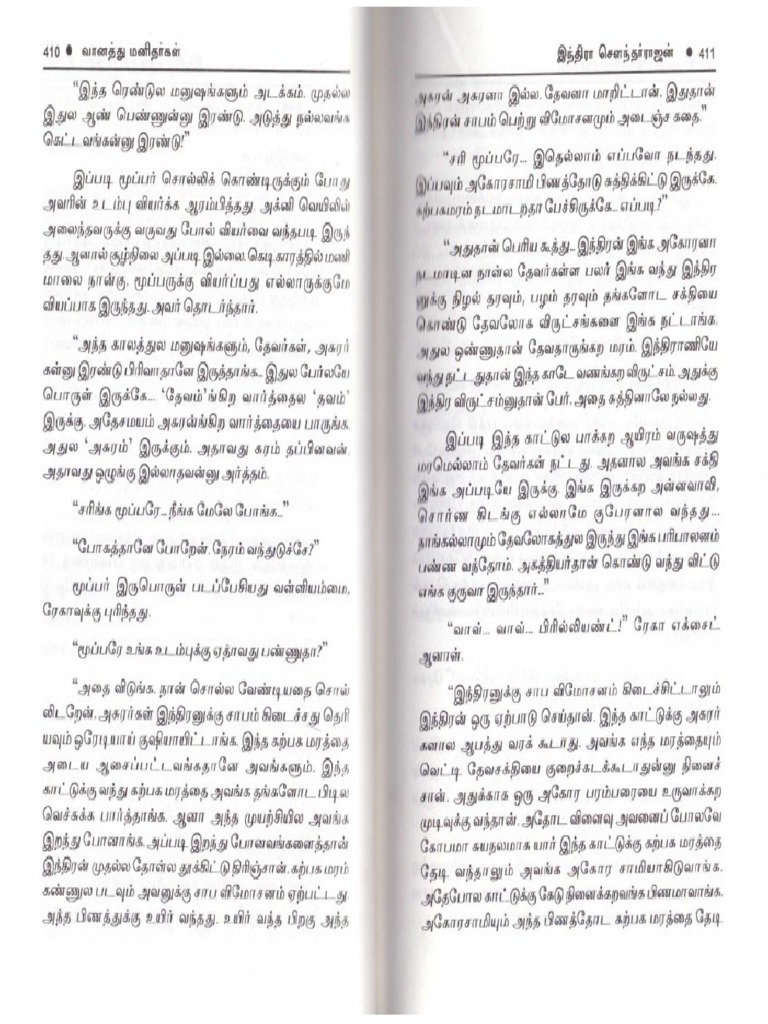 410 ● வானத்து மனிதர்கள்
"இந்த ரெண்டுல மனுஷங்களும் அடக்கம். முதல்ல
இதுல ஆண் பெண்ணுன்னு இரண்டு. அடுத்து நல்லவங்க
கெட்டவங்கன்னு இரண்டு!"
இப்படி மூப்பர் சொல்லிக் கொண்டிருக்கும் போது
அவரின் உடம்பு வியர்க்க ஆரம்பித்தது. அக்னி வெயிலில்
அலைந்தவருக்கு வருவது போல் வியர்வை வந்தபடி இருந்
தது. ஆனால் சூழ்நிலை அப்படி இல்லை. கெடிகாரத்தில் மணி
மாலை நான்கு. மூப்பருக்கு வியர்ப்பது எல்லாருக்குமே
வியப்பாக இருந்தது. அவர் தொடர்ந்தார்.
"அந்த காலத்துல மனுஷங்களும், தேவர்கள், அசுரர்
கள்னு இரண்டு பிரிவாதானே இருந்தாங்க.. இதுல பேர்லயே
பொருள் இருக்கே... 'தேவம்'ங்கிற வார்த்தைல 'தவம்'
இருக்கு. அதேசமயம் அசுரன்ங்கிற வார்த்தையை பாருங்க.
அதுல 'அசுரம்' இருக்கும். அதாவது சுரம் தப்பினவன்.
அதாவது ஒழுங்கு இல்லாதவன்னு அர்த்தம்.
"சரிங்க மூப்பரே.. நீங்க மேலே போங்க.."
"போகத்தானே போறேன். நேரம் வந்துடுச்சே?"
மூப்பர் இருபொருள் படப்பேசியது வள்ளியம்மை,
ரேகாவுக்கு புரிந்தது.
"மூப்பரே உங்க உடம்புக்கு ஏதாவது பண்ணுதா?"
"அதை விடுங்க. நான் சொல்ல வேண்டியதை சொல்
லிடறேன். அசுரர்கள் இந்திரனுக்கு சாபம் கிடைச்சது தெரி
யவும் ஒரேடியாய் குஷியாயிட்டாங்க. இந்த கற்பக மரத்தை
அடைய ஆசைப்பட்டவங்கதானே அவங்களும். இந்த
காட்டுக்கு வந்து கற்பக மரத்தை அவங்க தங்களோட பிடில
வெச்சுக்க பார்த்தாங்க. ஆனா அந்த முயற்சியில அவங்க
இறந்து போனாங்க. அப்படி இறந்து போனவங்களைத்தான்
இந்திரன் முதல்ல தோள்ல தூக்கிட்டு திரிஞ்சான். கற்பக மரம்
கண்ணுல படவும் அவனுக்கு சாப விமோசனம் ஏற்பட்டது.
அந்த பிணத்துக்கு உயிர் வந்தது. உயிர் வந்த பிறகு அந்த
இந்திரா சௌந்தர்ராஜன் ● 411
அசுரன் அசுரனா இல்ல. தேவனா மாறிட்டான். இதுதான்
இந்திரன் சாபம் பெற்று விமோசனமும் அடைஞ்ச கதை."
"சரி மூப்பரே... இதெல்லாம் எப்பவோ நடந்தது.
இப்பவும் அகோரசாமி பிணத்தோடு சுத்திக்கிட்டு இருக்கே.
கற்பகமரம் நடமாடறதா பேச்சிருக்கே... எப்படி?"
"அதுதான் பெரிய கூத்து.. இந்திரன் இங்க அகோரனா
நடமாடின நாள்ல தேவர்கள்ள பலர் இங்க வந்து இந்திர
னுக்கு நிழல் தரவும், பழம் தரவும் தங்களோட சக்தியை
கொண்டு தேவலோக விருட்சங்களை இங்க நட்டாங்க.
அதுல ஒண்ணுதான் தேவதாருங்கற மரம். இந்திராணியே
வந்து நட்டதுதான் இந்த காடே வணங்கற விருட்சம். அதுக்கு
இந்திர விருட்சம்னுதான் பேர். அதை சுத்தினாலே நல்லது.
இப்படி இந்த காட்டுல பாக்கற ஆயிரம் வருஷத்து
மரமெல்லாம் தேவர்கள் நட்டது. அதனால அவங்க சக்தி
இங்க அப்படியே இருக்கு. இங்க இருக்கற அன்னவாவி,
சொர்ண கிடங்கு எல்லாமே குபேரனால வந்தது...
நாங்கல்லாமும் தேவலோகத்துல இருந்து இங்க பரிபாலனம்
பண்ண வந்தோம். அகத்தியர்தான் கொண்டு வந்து விட்டு
எங்க குருவா இருந்தார்.."
"வாவ்... வாவ்... பிரில்லியண்ட்!" ரேகா எக்சைட்
ஆனாள்.
"இந்திரனுக்கு சாப விமோசனம் கிடைச்சிட்டாலும்
இந்திரன் ஒரு ஏற்பாடு செய்தான். இந்த காட்டுக்கு அசுரர்
களால ஆபத்து வரக் கூடாது. அவங்க எந்த மரத்தையும்
வெட்டி, தேவசக்தியை குறைச்சுடக்கூடாதுன்னு நினைச்
சான். அதுக்காக ஒரு அகோர பரம்பரையை உருவாக்கற
முடிவுக்கு வந்தான். அதோட விளைவு அவனைப் போலவே
கோபமா சுயநலமாக யார் இந்த காட்டுக்கு கற்பக மரத்தை
தேடி வந்தாலும் அவங்க அகோர சாமியாகிடுவாங்க.
அதேபோல காட்டுக்கு கேடு நினைக்கறவங்க பிணமாவாங்க.
அகோரசாமியும் அந்த பிணத்தோட கற்பக மரத்தை தேடி